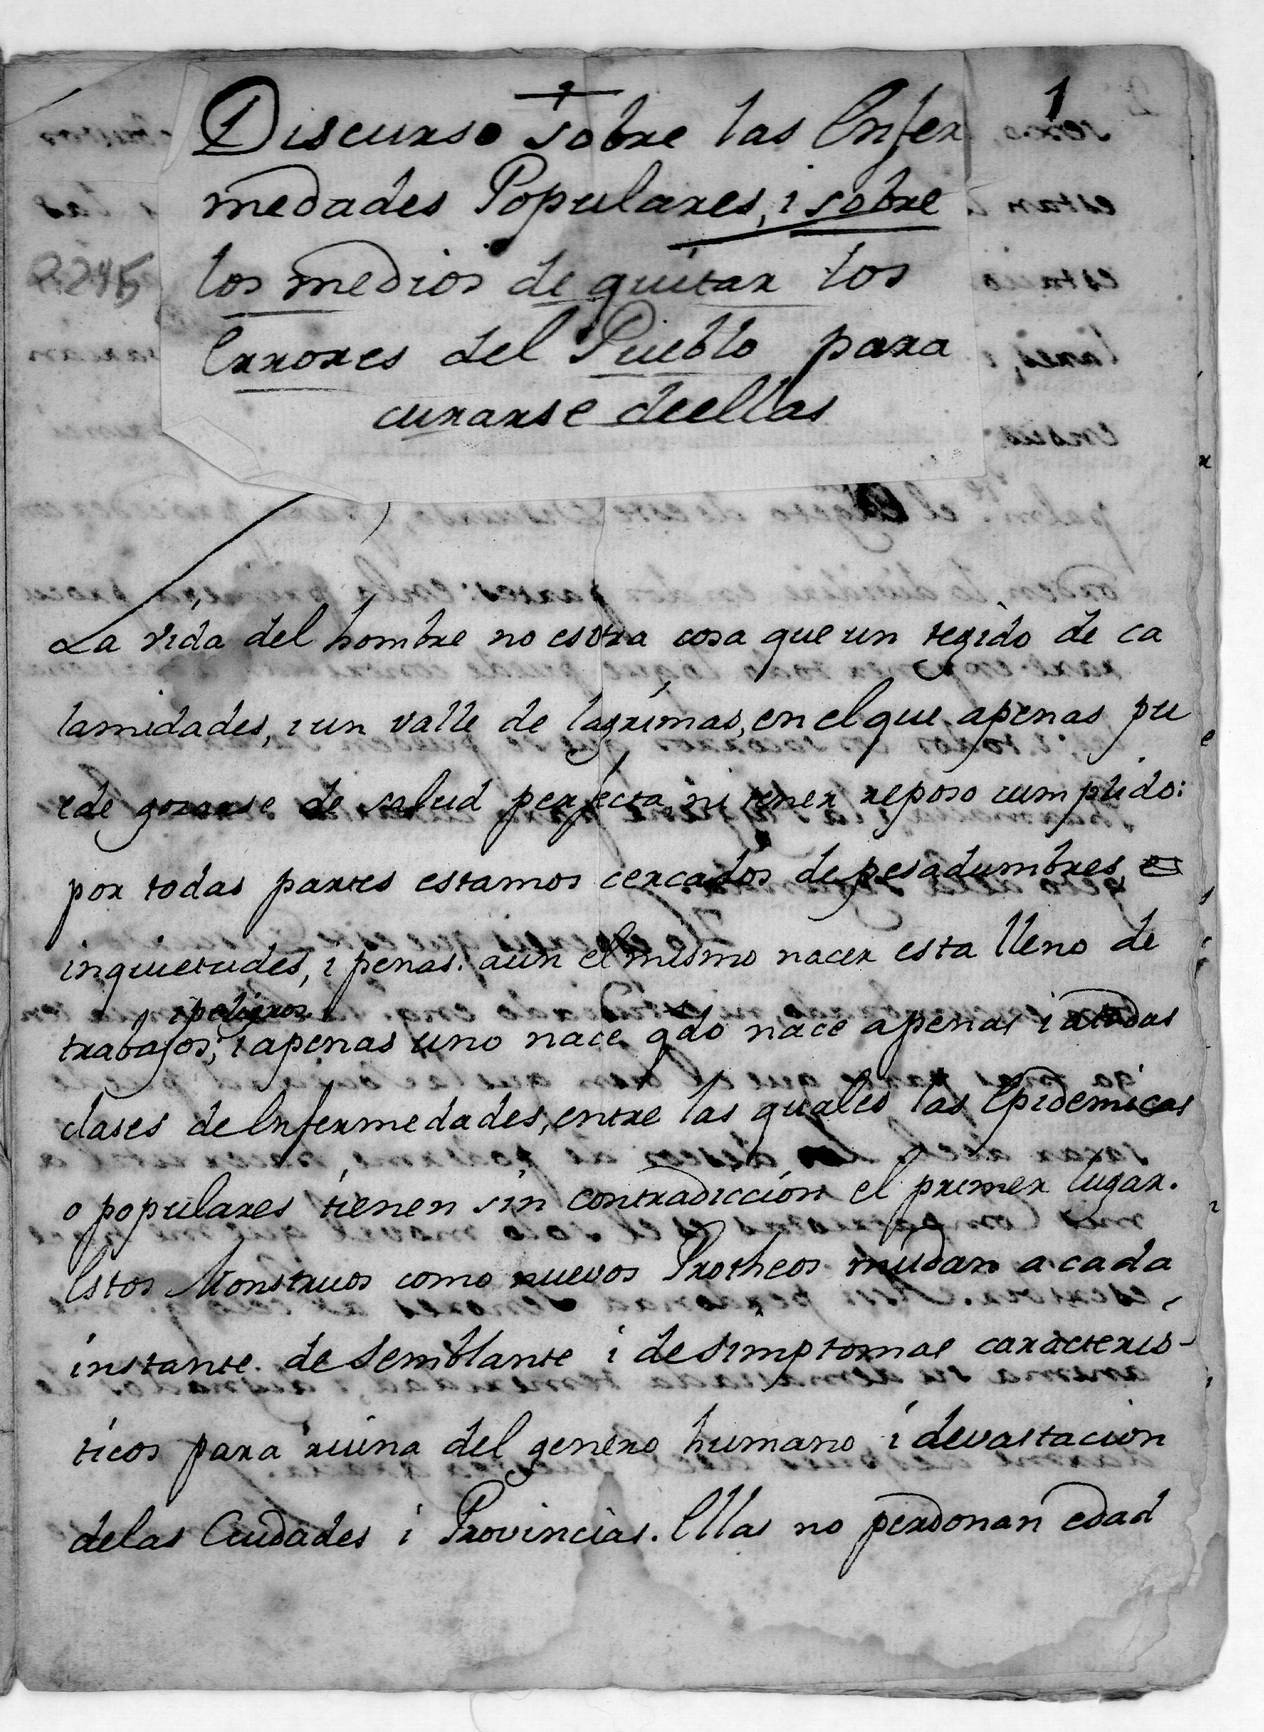 1
Discurso sobre las Enfer
medades Populares, i sobre
los medios de quitar los
Errores del Pueblo para
curarse deellas
2245
La vida del hombre no esotra cosa que un tegido de ca
lamidades, i un valle de lagrimas, en el que apenas pu
ede gozarse de salud perfecta, ni tener reposo cumplido:
por todas partes estamos cercados de pesadumbres,
inquietudes, i penas: aun el mismo nacer esta lleno de
i peligros
trabajos, i apenas uno nace qdo nace a penas i atodas
clases de Enfermedades, entre las quales las Epidemicas
o populares tienen sin contradiccion el primer lugar.
Estos Monstruos como nuevos Protheos mudan a cada
instante de Semblante i de simptomas caracteris-
ticos para ruina del genero humano i devastacion
delas Ciudades i Provincias. Ellas no perdonan edad